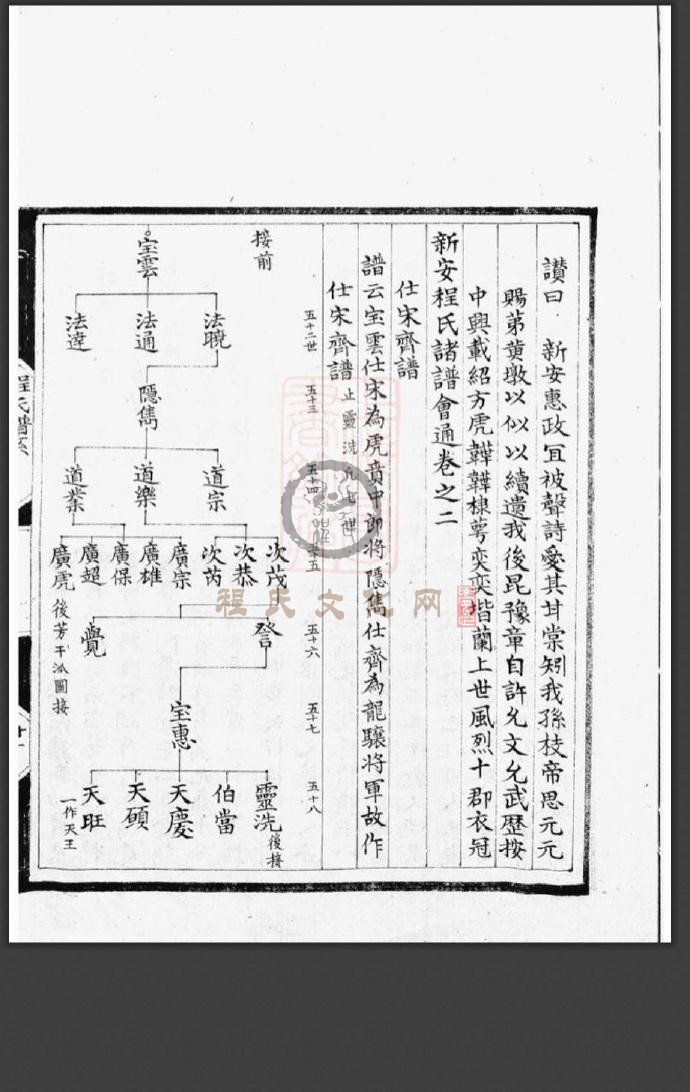 讃曰　新安惠政冝被聲詩愛其甘棠矧我孫枝帝思元元
賜第黄墩以似以續遺我後昆豫章自許允文允武歷按
中興載紹方虎韡韡棣萼奕奕堦蘭上世風烈十郡衣冠
新安程氏諸譜會通卷之二
仕宋齊譜
譜云宝雲仕宋為虎賁中郎將隱雋仕齊為龍驤将軍故作
仕宋齊譜止靈洗凡七世
五十二世
五十三
五十四
五十五
五十六
五十七
五十八
接前
宝雲
法曉
法通
法達
隱雋
道宗
道樂
道業
次茂
次恭
次芮
廣宗
廣雄
廣保
廣超
廣虎 後芳干派圖接
詧
覺
宝惠
靈洗 後接
伯當
天慶
天碩
天旺
一作天王
程氏譜系
程氏文化网